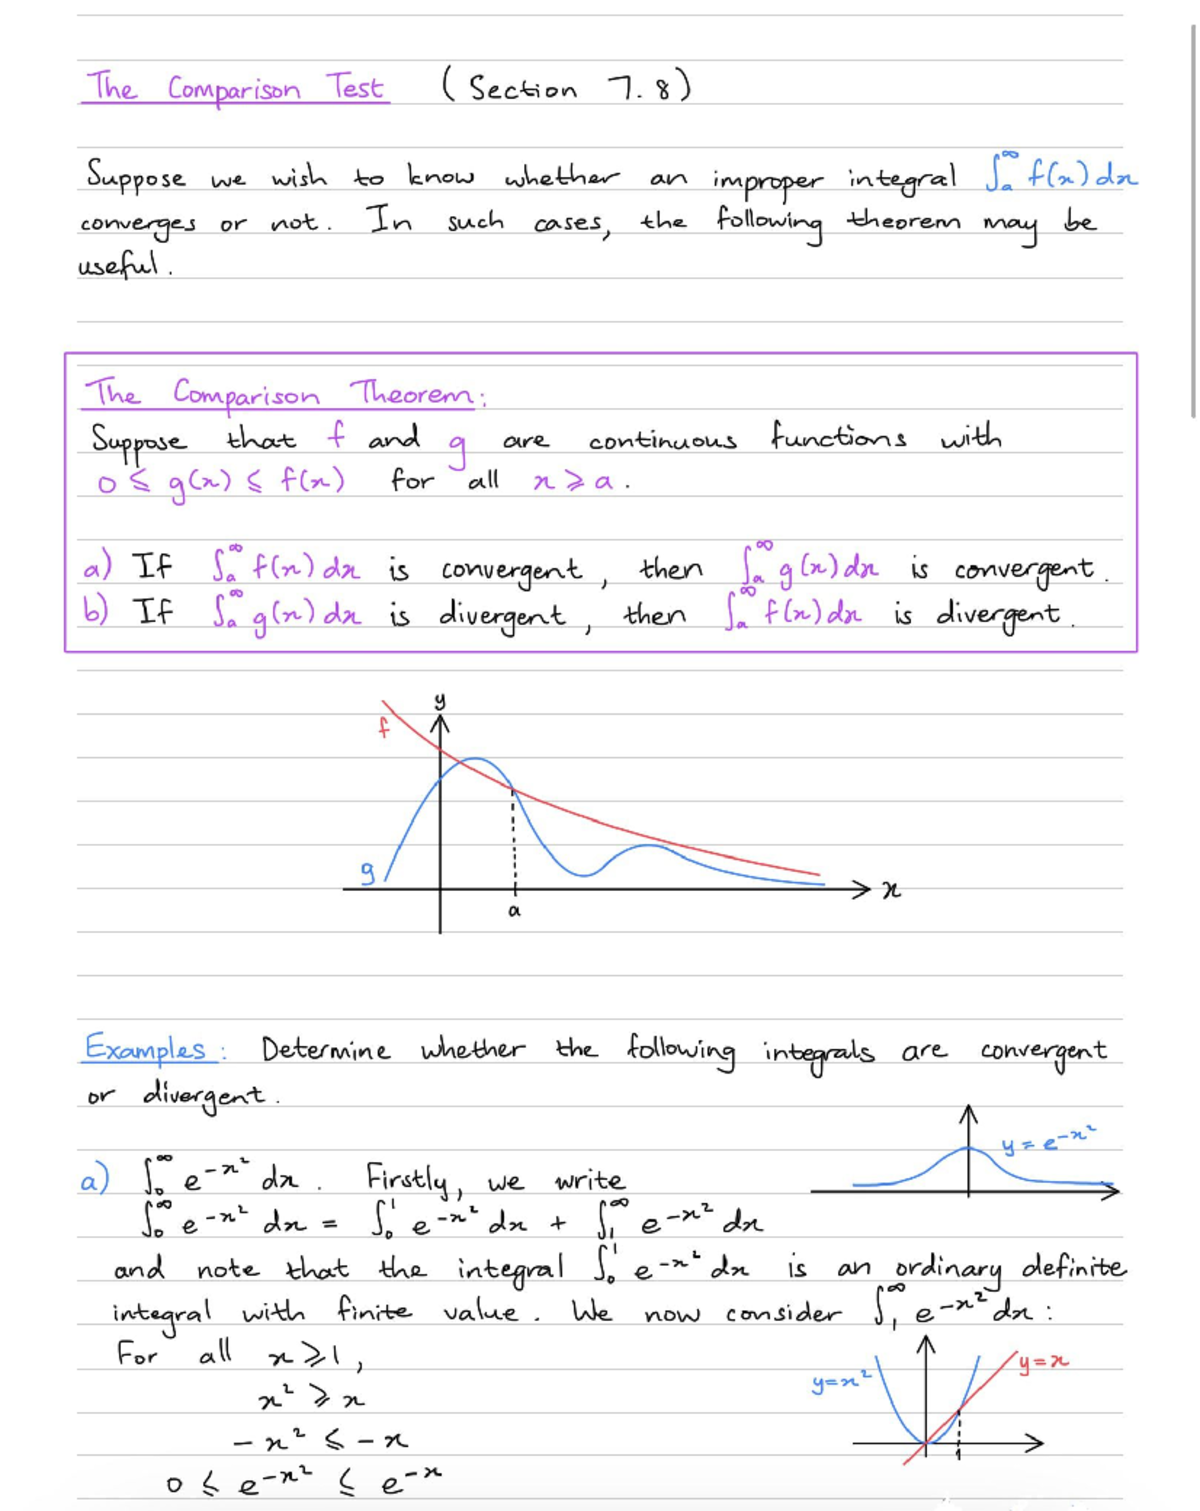 The Comparison Test (Section 7.8)
Suppose we wish to know whether an improper integral ∫ₐ^∞ f(x) dx
converges or not. In such cases, the following theorem may be
useful.
The Comparison Theorem:
Suppose that f and g are continuous functions with
0 ≤ g(x) ≤ f(x) for all x ≥ a.
a) If ∫ₐ^∞ f(x) dx is convergent, then ∫ₐ^∞ g(x) dx is convergent.
b) If ∫ₐ^∞ g(x) dx is divergent, then ∫ₐ^∞ f(x) dx is divergent.
y
f
g
x
a
Examples: Determine whether the following integrals are convergent
or divergent.
y = e^{-x²}
a) ∫₀^∞ e^{-x²} dx. Firstly, we write
∫₀^∞ e^{-x²} dx = ∫₀¹ e^{-x²} dx + ∫₁^∞ e^{-x²} dx
and note that the integral ∫₀¹ e^{-x²} dx is an ordinary definite
integral with finite value. We now consider ∫₁^∞ e^{-x²} dx:
For all x ≥ 1,
y=x² y=x
x² ≥ x
-x² ≤ -x
1
0 ≤ e^{-x²} ≤ e^{-x}